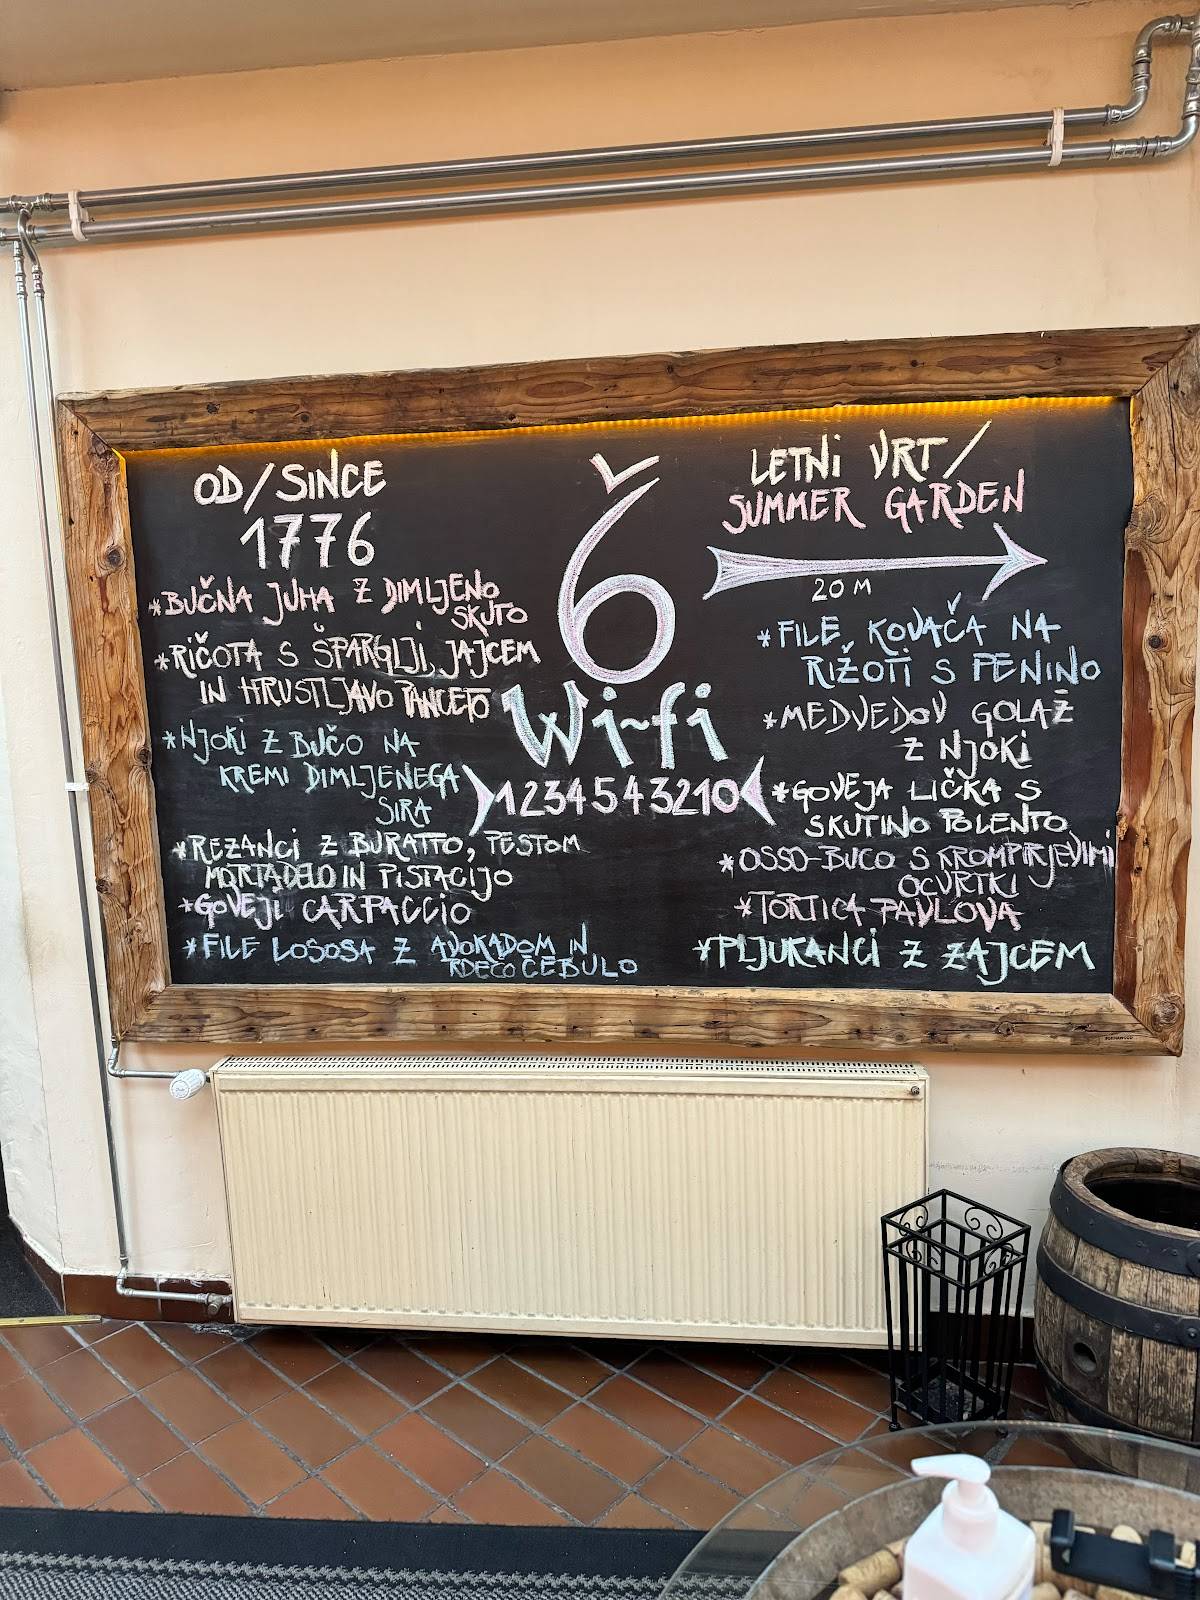 OD/SINCE
1776
*BUČNA JUHA Z DIMLJENO
SKUTO
*RIČOTA S ŠPARGLJI, JAJCEM
IN HRUSTLJAVO PANCETO
*NJOKI Z BUČO NA
KREMI DIMLJENEGA
SIRA
*REZANCI Z BURATTO, PESTOM
MORTADELO IN PISTACIJO
*GOVEJI CARPACCIO
*FILE LOSOSA Z AVOKADOM IN
RDEČO ČEBULO
6̌
Wi-fi
1234543210
LETNI VRT/
SUMMER GARDEN
20 M
*FILE KOVAČA NA
RIŽOTI S PENINO
*MEDVEDOV GOLAŽ
Z NJOKI
*GOVEJA LIČKA S
SKUTINO POLENTO
*OSSO-BUCO S KROMPIRJEVIMI
OCVRTKI
*TORTICA PAVLOVA
*PLJUKANCI Z ZAJCEM